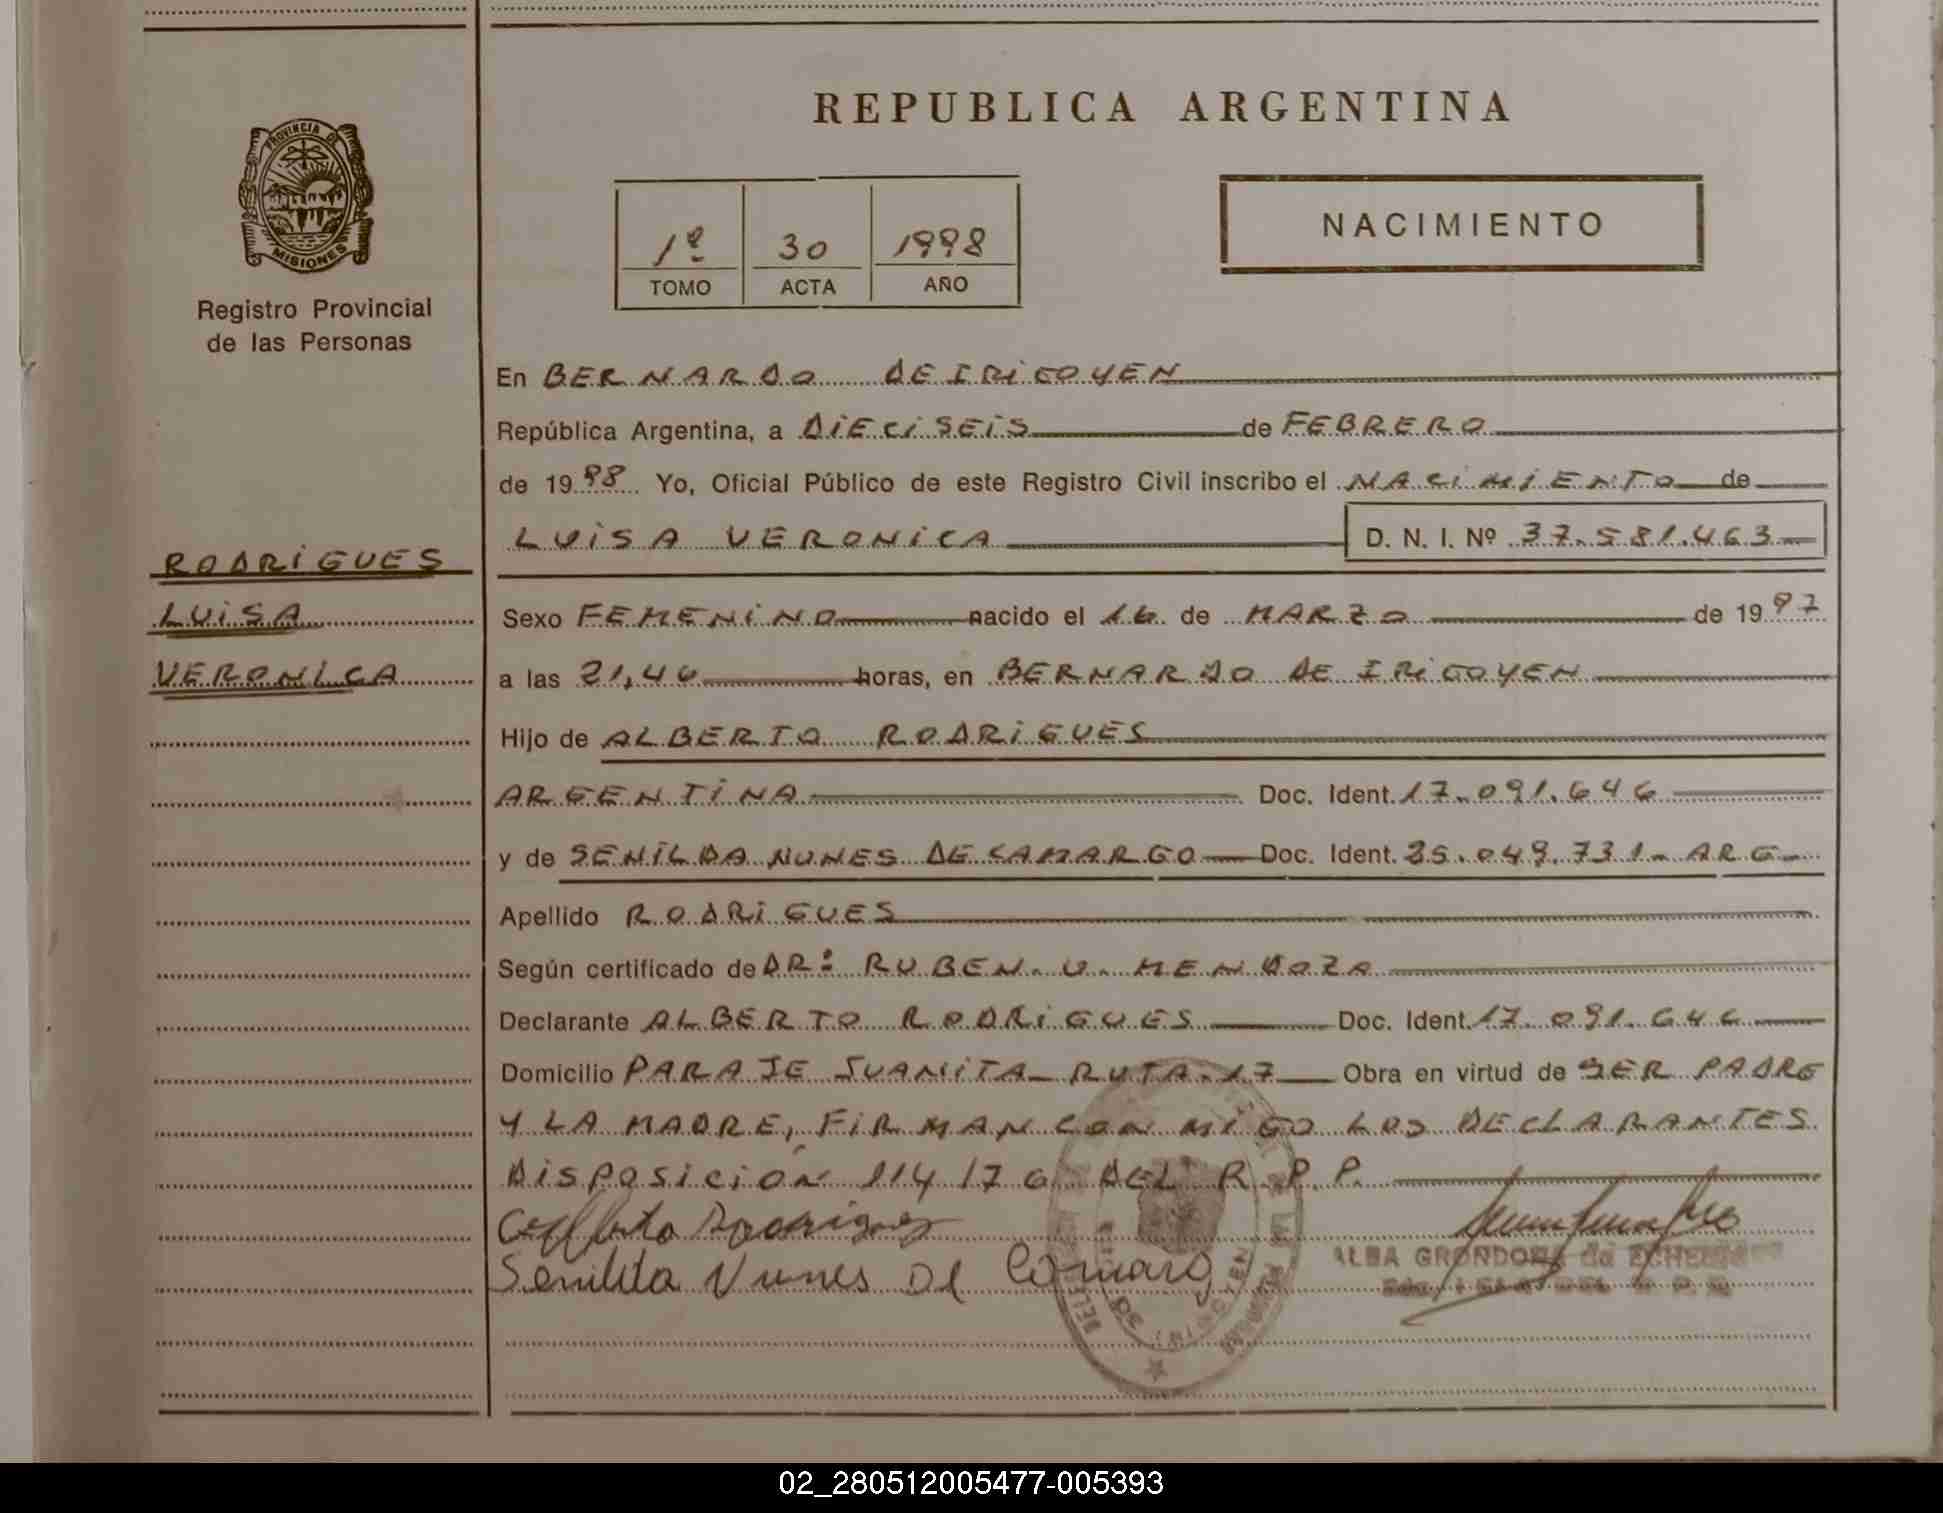 REPUBLICA ARGENTINA
PROVINCIA DE
MISIONES
Registro Provincial
de las Personas
1º 30 1998
TOMO ACTA AÑO
NACIMIENTO
En BERNARDO DE IRIGOYEN
República Argentina, a DIECISEIS de FEBRERO
de 1998 Yo, Oficial Público de este Registro Civil inscribo el NACIMIENTO de
LUISA VERONICA D. N. I. Nº 37.581.463
RODRIGUES
LUISA
VERONICA
Sexo FEMENINO nacido el 16 de MARZO de 1997
a las 21,40 horas, en BERNARDO DE IRIGOYEN
Hijo de ALBERTO RODRIGUES
ARGENTINA Doc. Ident. 17.091.646
y de SENILDA NUNES DE CAMARGO Doc. Ident. 35.049.731- ARG-
Apellido RODRIGUES
Según certificado de DR: RUBEN. U. MENDOZA
Declarante ALBERTO RODRIGUES Doc. Ident. 17.091.646
Domicilio PARAJE JUANITA RUTA.17 Obra en virtud de SER PADRE
Y LA MADRE, FIRMAN CONMIGO LOS DECLARANTES
DISPOSICIÓN 114/76 DEL R.P.P.
Alberto Rodrigues
Senilda Nunes De Camargo
ALBA GRONDONA de
02_280512005477-005393